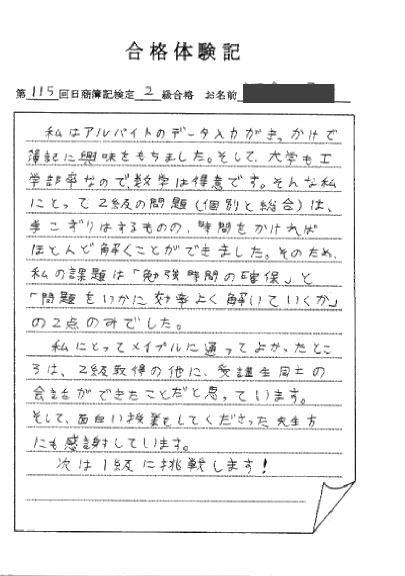 合格体験記
第115回日商簿記検定2級合格 お名前
私はアルバイトのデータ入力がきっかけで
簿記に興味をもちました。そして、大学も工
学部卒なので、数学は得意です。そんな私
にとって2級の問題(個別と総合)は、
手こずりはするものの、時間をかければ
ほとんど解くことができました。そのため、
私の課題は「勉強時間の確保」と
「問題をいかに効率よく解いていくか」
の2点のみでした。
私にとってメイプルに通ってよかったとこ
ろは、2級取得の他に、受講生同士の
会話ができたことだと思っています。
そして、面白い授業をしてくださった先生方
にも感謝しています。
次は1級に挑戦します!